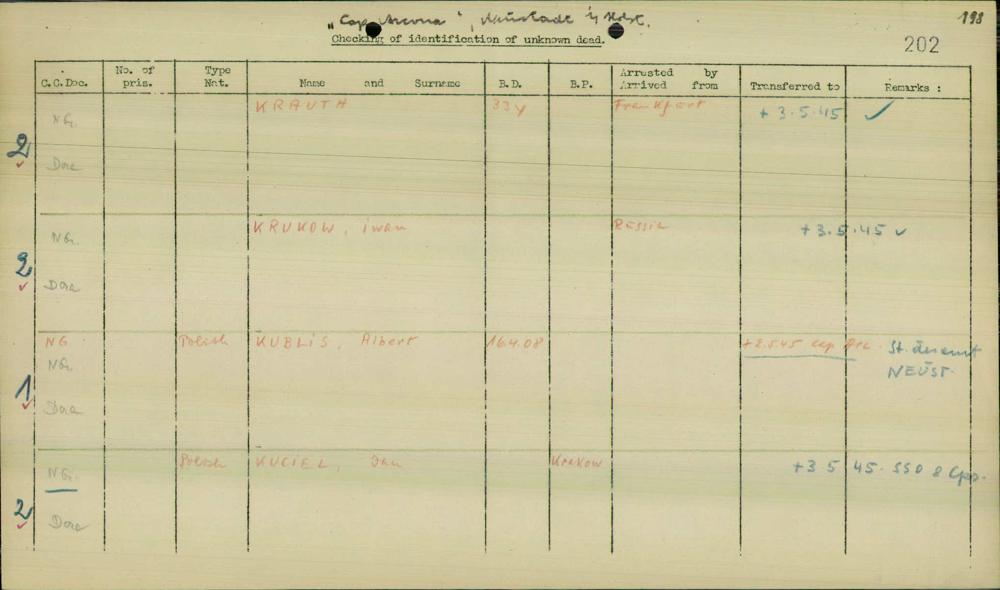 "Cap Arcona", Neustadt i/ Holst. 198
Checking of identification of unknown dead. 202
C.C.Doc. No. of pris. Type Nat. Name and Surname B.D. B.P. Arrested by Arrived from Transferred to Remarks :
KRAUTH 33y Frankfurt + 3.5.45 ✓
NG.
2 ✓
Dora
KRUKOW, iwan Russia + 3.5.45 ✓
NG.
2 ✓
Dora
NG Polish KUBLIS, Albert 16.4.08 St.desamt
NG. NEUST.
1 ✓
Dora
Polish KUCIEL, Jan Krakow +3 5 45. SSD 8
NG.
2 ✓
Dora